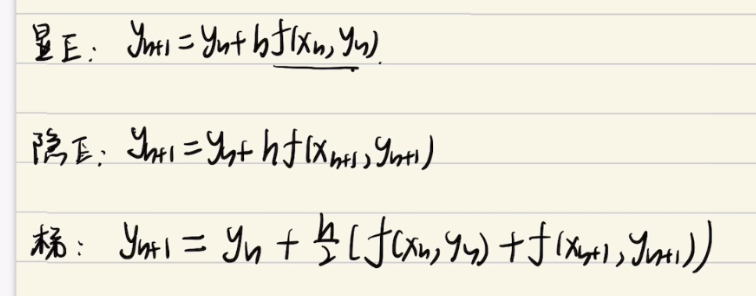 显E: yₙ₊₁ = yₙ + hf(xₙ, yₙ)
隐E: yₙ₊₁ = yₙ + hf(xₙ₊₁, yₙ₊₁)
梯: yₙ₊₁ = yₙ + h/2 (f(xₙ, yₙ) + f(xₙ₊₁, yₙ₊₁))